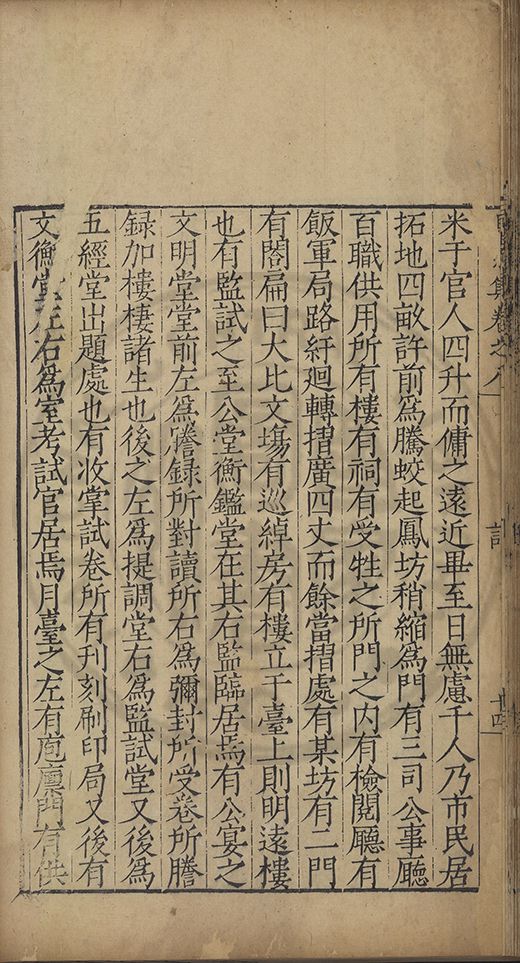 米于官人四升而傭之遠近畢至日無慮千人乃市民居
拓地四畝許前為騰蛟起鳳坊稍縮為門有三司公事廳
百職供用所有樓有祠有受牲之所門之内有檢閱廳有
飯軍局路紆廻轉摺廣四丈而餘當摺處有某坊有二門
有閣扁曰大比文塲有巡綽房有樓立于臺上則明遠樓
也有監試之至公堂衡鑑堂在其右監臨居焉有公宴之
文明堂堂前左為謄録所對讀所右為彌封所受卷所謄
録加樓棲諸生也後之左為提調堂右為監試堂又後為
五經堂出題處也有收掌試卷所有刋刻刷印局又後有
文衡堂左右為室考試官居焉月臺之左有庖廪門有供
集卷之八
記
十四